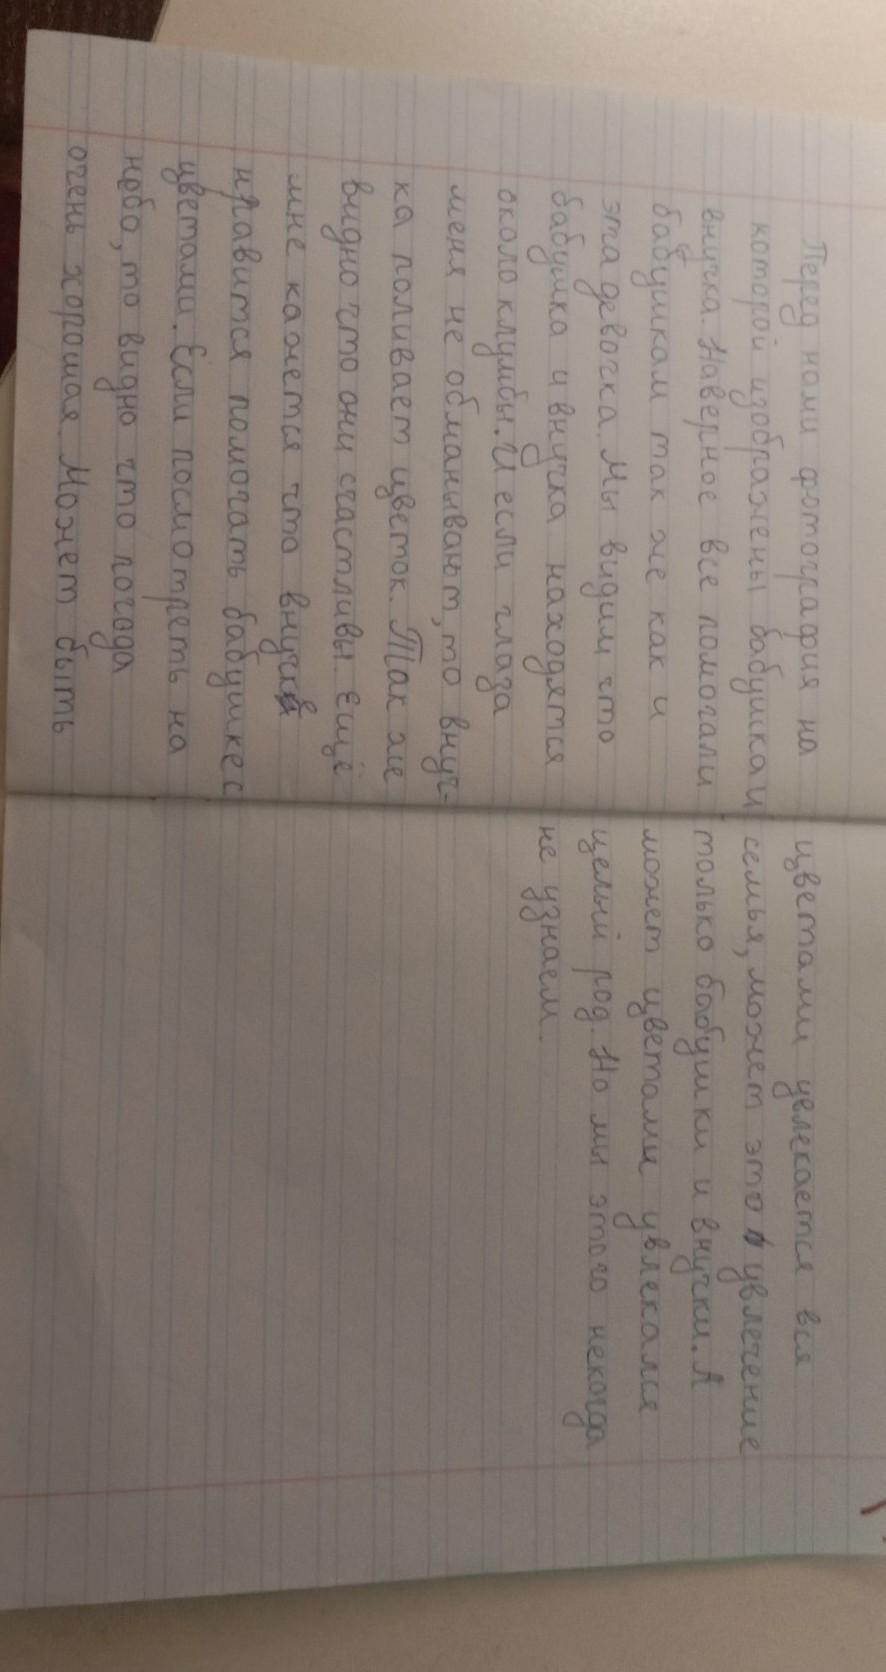 Перед нами фотография на
которой изображены бабушка и
внучка. Наверное все помогали
бабушкам так же как и
эта девочка. Мы видим что
бабушка и внучка находятся
около клумбы. И если глаза
меня не обманывают, то внуч-
ка поливает цветок. Так же
видно что они счастливы. Ещё
мне кажется что внучке
нравится помогать бабушке с
цветами. Если посмотреть на
небо, то видно что погода
очень хорошая. Может быть
цветами увлекается вся
семья, может это увлечение
только бабушки и внучки. А
может цветами увлекался
целый род. Но мы этого некогда
не узнаем.